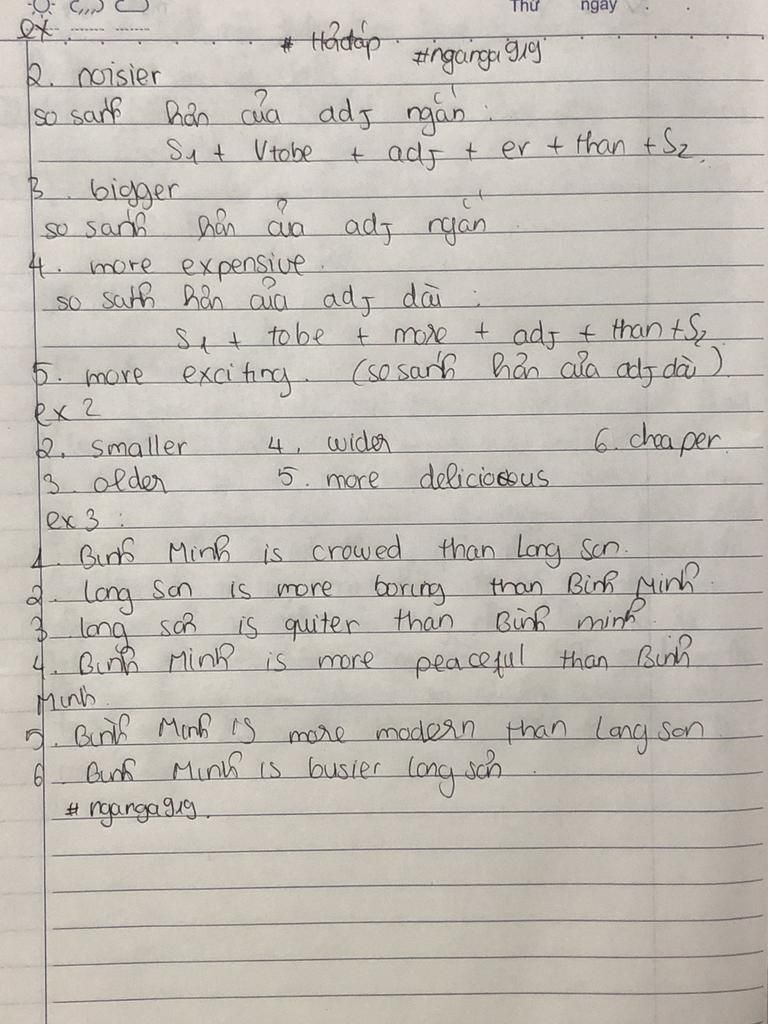 Thứ ngày
ex
# Hỏi đáp #nganga919
2. noisier
so sánh hơn của adj ngắn :
S1 + Vtobe + adj + er + than + S2.
3. bigger
so sánh hơn của adj ngắn
4. more expensive.
so sánh hơn của adj dài :
S1 + tobe + more + adj + than + S2
5. more exciting. (so sánh hơn của adj dài)
ex 2
2. smaller 4. wider 6. cheaper
3. older 5. more delicious
ex 3 :
1. Bình Minh is crowed than Long Sơn.
2. Long Sơn is more boring than Bình Minh.
3 long sơn is quiter than Bình minh.
4. Bình Minh is more peaceful than Bình
Minh.
5. Bình Minh is more modern than Long sơn
6 Bình Minh is busier long sơn.
# nganga919.